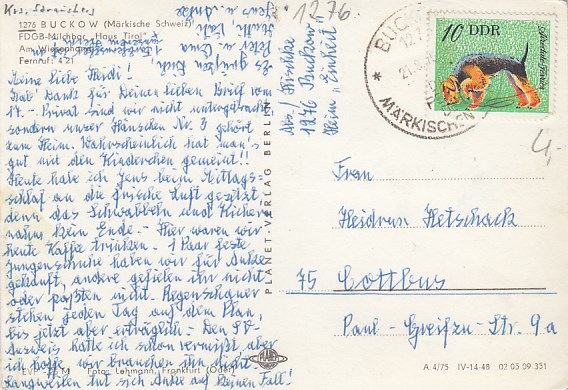 Krs. Strausberg
1276 BUCKOW (Märkische Schweiz)
FDGB-Milchbar „Haus Tirol"
Am
Fernruf: 421
Meine liebe Heidi!
Hab' Dank für Deinen lieben Brief vom
17. – Privat sind wir nicht untergebracht
sondern unser Häuschen Nr. 3 gehört
zum Heim. Wahrscheinlich hat man's
gut mit den Kinderchen gemeint!!
Heute habe ich Jens beim Mittags-
schlaf an die frische Luft gesetzt
denn das Schwabbeln und Kichern
nahm kein Ende. – Hier waren wir
heute Kaffee trinken. 1 Paar feste
Jungenschuhe haben wir für Anke
gekauft, andere gefielen ihr nicht
oder paßten nicht. Regenschauer
stehen jeden Tag auf dem Plan,
bis jetzt aber erträglich. – Den
Ausweis hatte ich schon vermißt, aber
ich hoffe, wir brauchen ihn nicht.
langweilen tut sich Anke auf keinen Fall!
Es grüßen Dich
Jens u. Anke
Abs.:
1276 Buckow
Heim „Einheit"
1276
PLANET-VERLAG BERLIN
BUCKOW
MÄRKISCHEN
10 DDR
4,-
Frau
Heidrun Hetschack
75 Cottbus
Paul-Greifzu-Str. 9a
EVP M
Foto: Lehmann, Frankfurt (Oder)
PLANET
A 4/75 IV-14-48 02 05 09 351